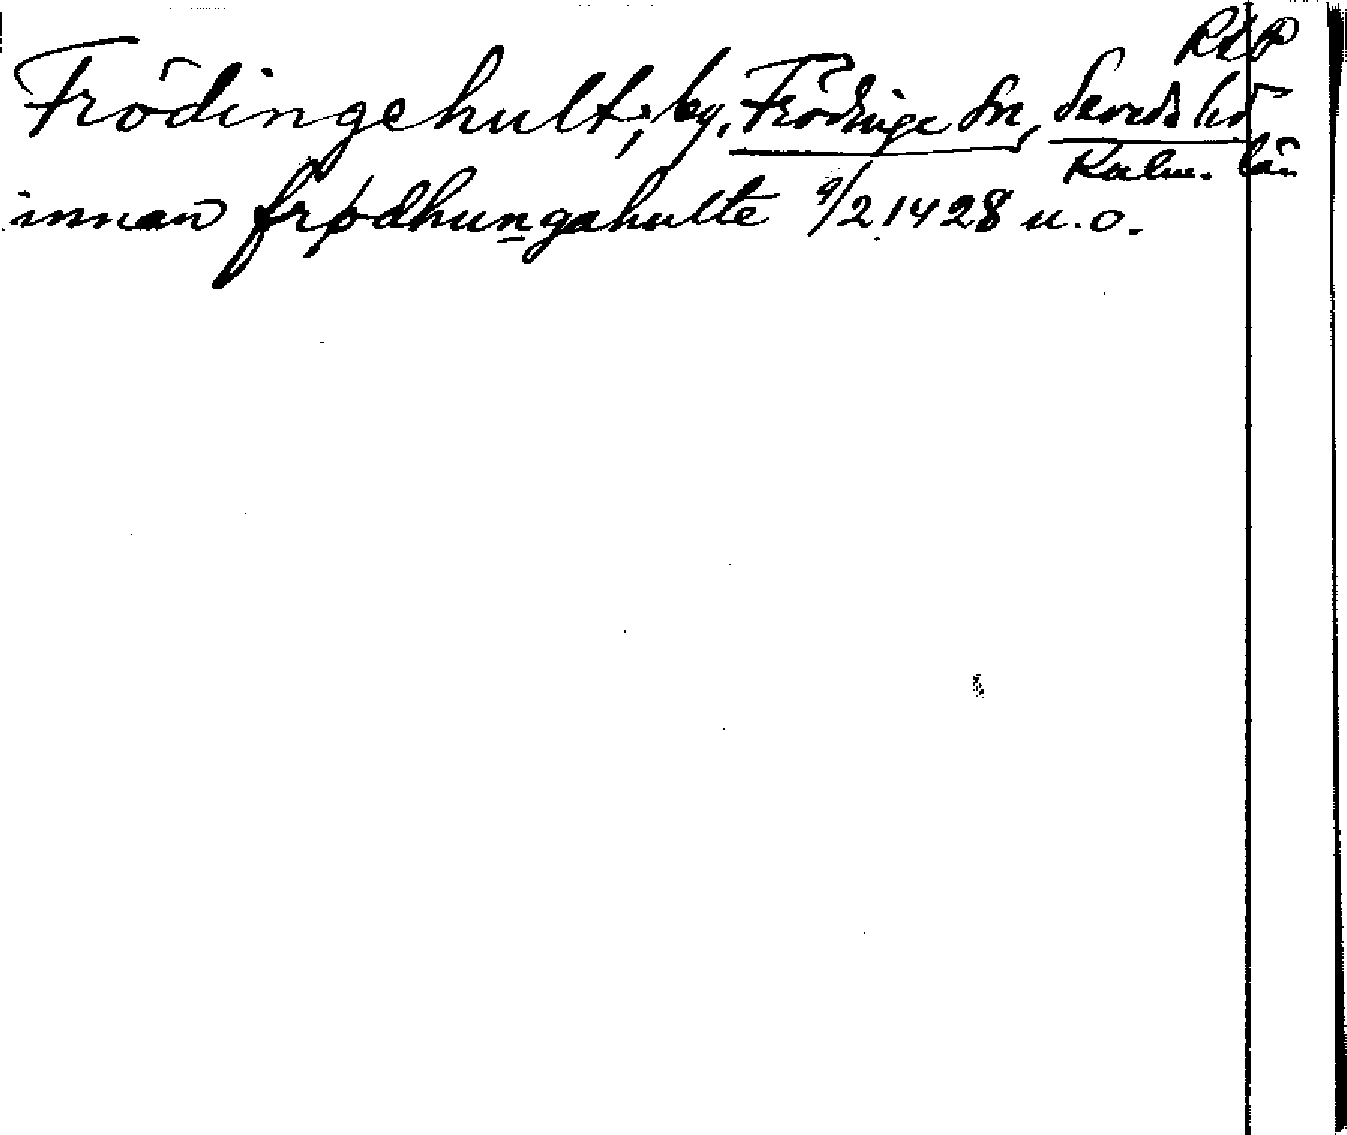 RAP
Frödingehult, by, Frödinge sn, Sevede hd
Kalm. län
innan frødhungahulte 9/2 1428 u.o.